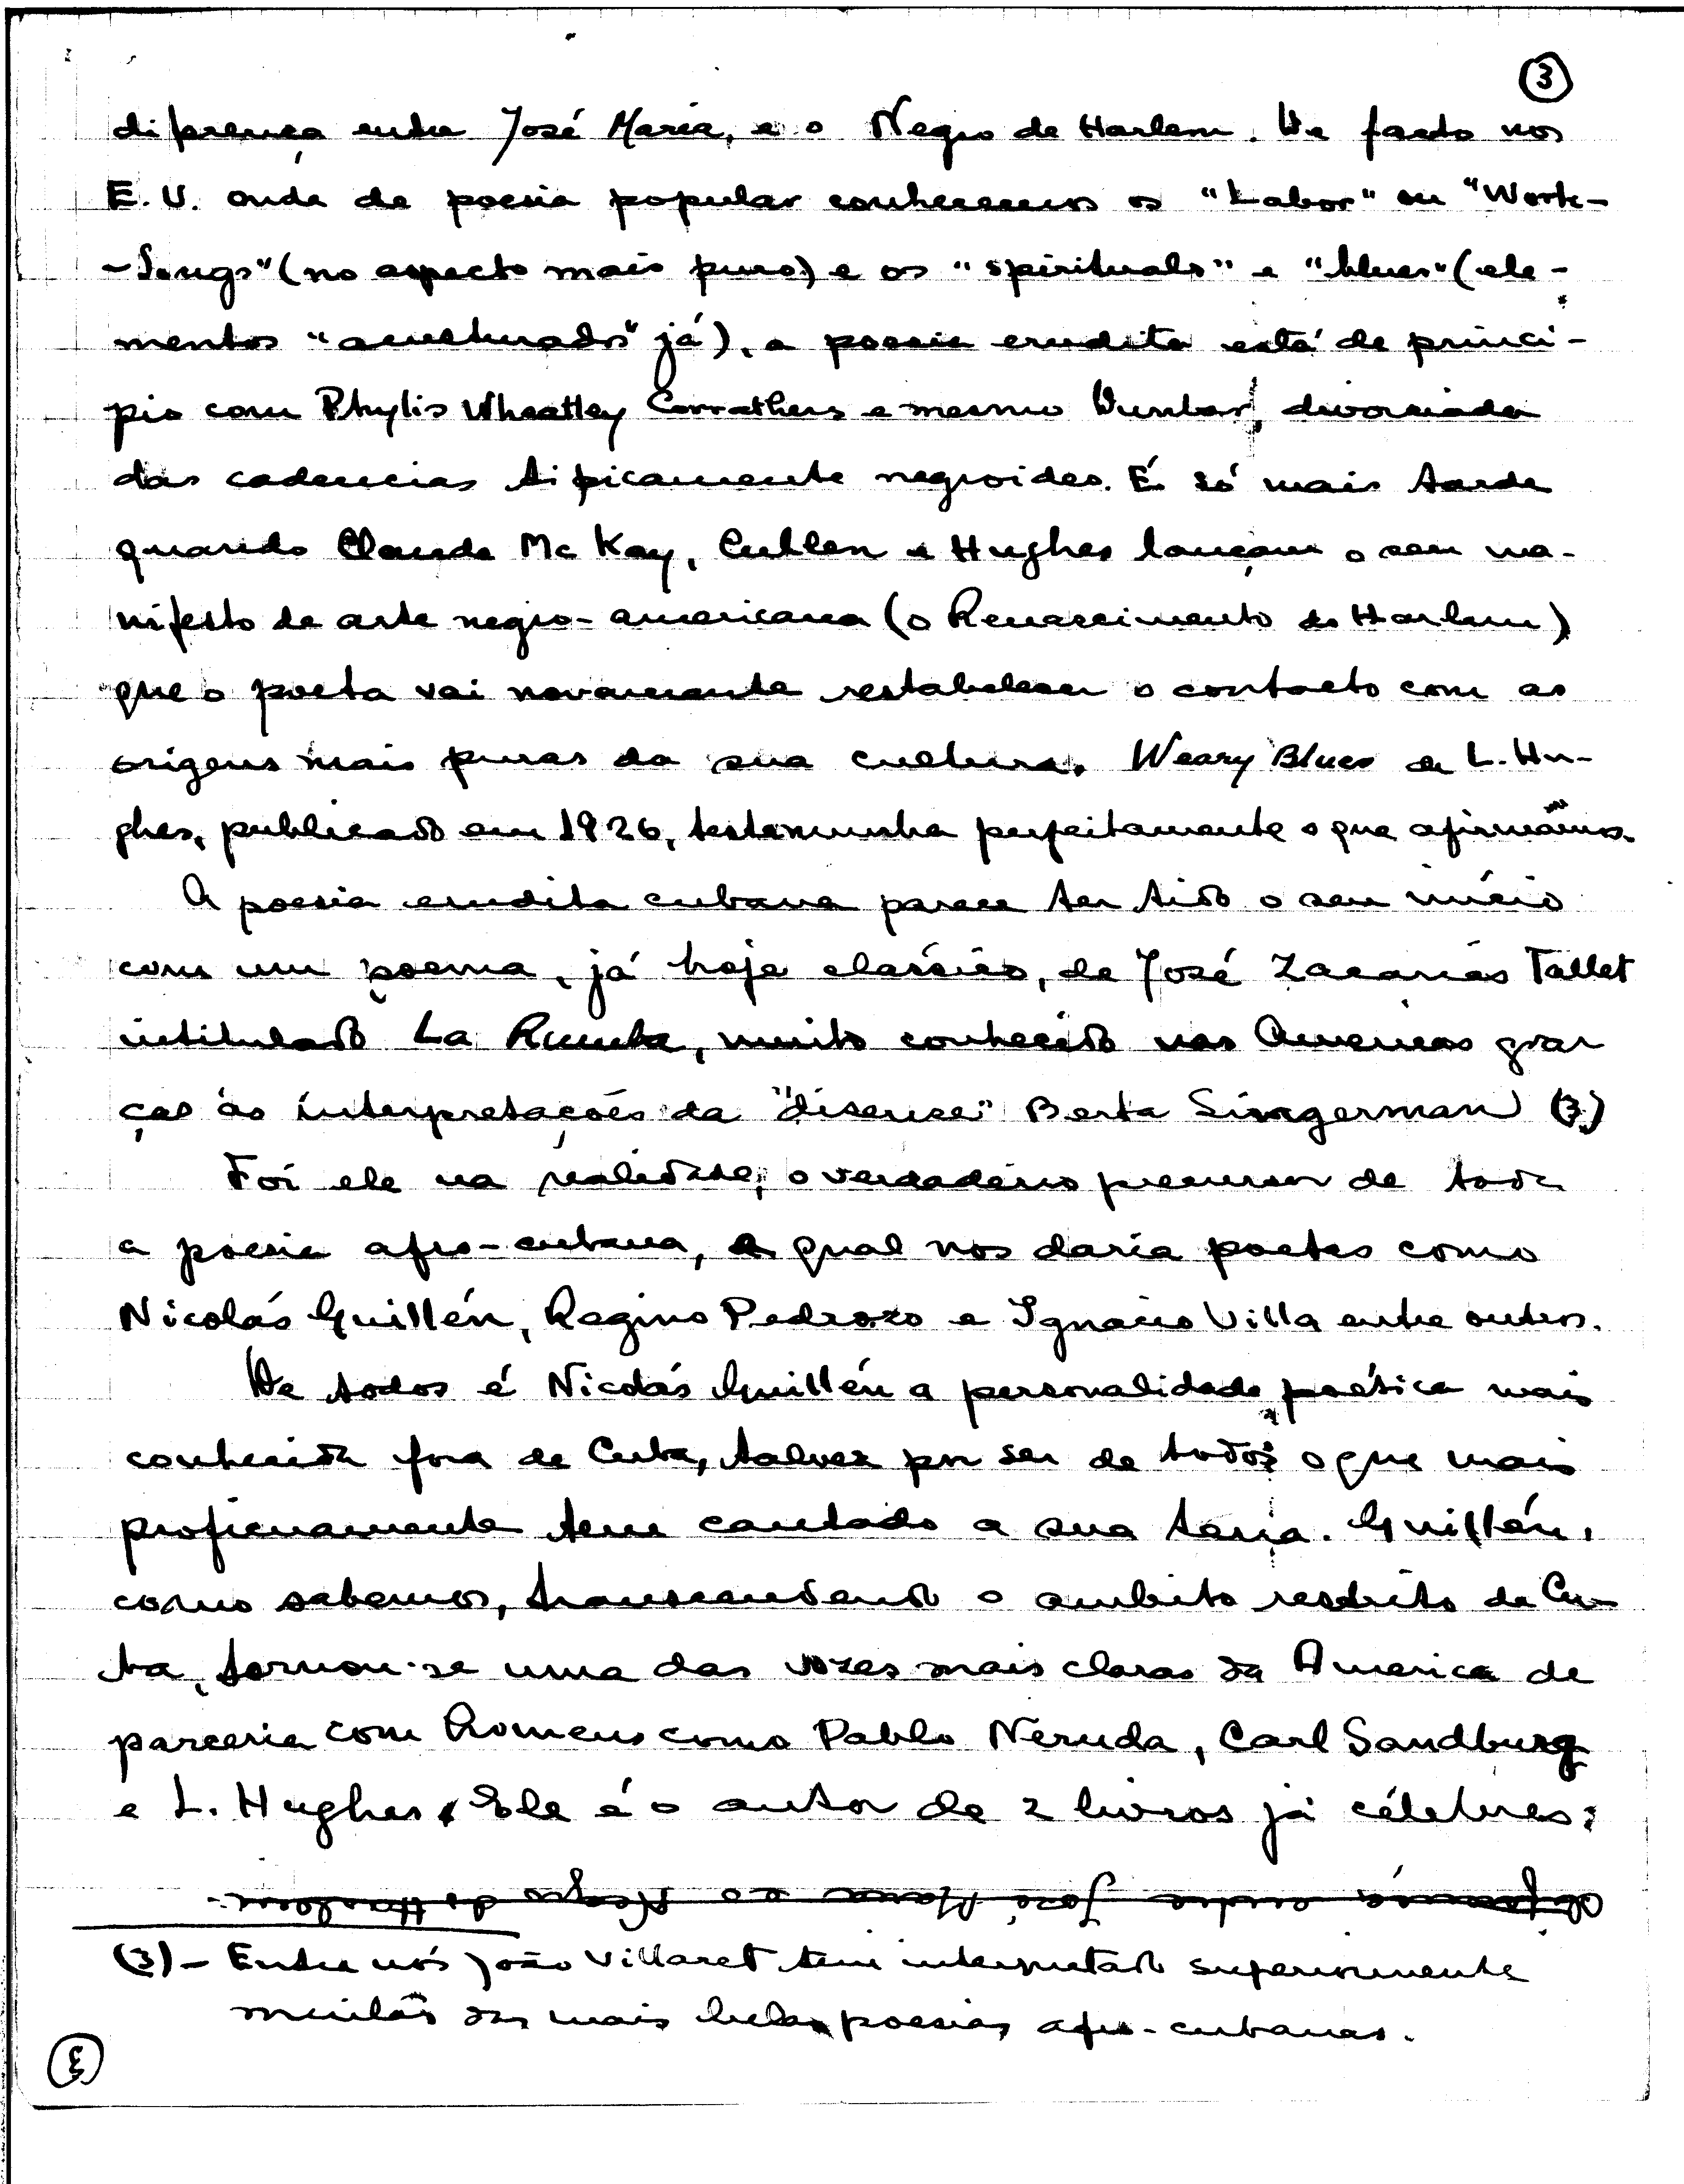 3
diferença entre José Maria, e o Negro de Harlem. De facto nos
E.U. onde de poesia popular conhecemos os "Labor" ou "Work-
-Songs" (no aspecto mais puro) e os "spirituals" e "blues" (ele-
mentos "aculturados" já), a poesia erudita está de princí-
pio com Phylis Wheatley Corrathers e mesmo Dunbar, divorciada
das cadencias tipicamente negroides. É só mais tarde
quando Claude Mc Kay, Cullen e Hughes lançam o seu ma-
nifesto de arte negro-americana (o Renascimento do Harlem)
que o poeta vai novamente restabelecer o contacto com as
origens mais puras da sua cultura. Weary Blues de L. Hu-
ghes, publicado em 1926, testemunha perfeitamente o que afirmámos.
A poesia erudita cubana parece ter tido o seu início
com um poema, já hoje clássico, de José Zacarías Tallet
intitulado La Rumba, muito conhecido nas Americas gra-
ças às interpretações da "diseuse" Berta Singerman (3)
Foi ele na realidade, o verdadeiro precursor de toda
a poesia afro-cubana, a qual nos daria poetas como
Nicolás Guillén, Regino Pedrozo e Ignacio Villa entre outros.
De todos é Nicolás Guillén a personalidade poética mais
conhecida fora de Cuba, talvez por ser de todos o que mais
proficuamente tem cantado a sua terra. Guillén,
como sabemos, transcendendo o ambito restrito de Cu-
ba, tornou-se uma das vozes mais claras da America de
parceria com homens como Pablo Neruda, Carl Sandburg
e L. Hughes. Ele é o autor de 2 livros já célebres:
diferença entre José Maria e o Negro de Harlem.
(3) - Entre nós João Villaret tem interpretado superiormente
muitas das mais belas poesias afro-cubanas.
3